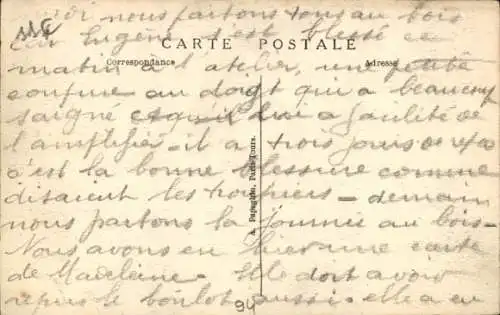 nous partons tous au bois
car Eugène s'est blessé ce
CARTE POSTALE
matin à l'atelier, une petite
Correspondance
Adresse
au doigt qui a beaucoup
saigné lui a de
l'amplifier il a trois jours de repos
c'est la bonne blessure comme
disaient les - demain
nous partons la journée au bois -
Nous avons eu hier une carte
de Madeleine - Elle doit avoir
repris le boulot aussi - elle a eu
A. Papeghin, Paris-Tours.
94